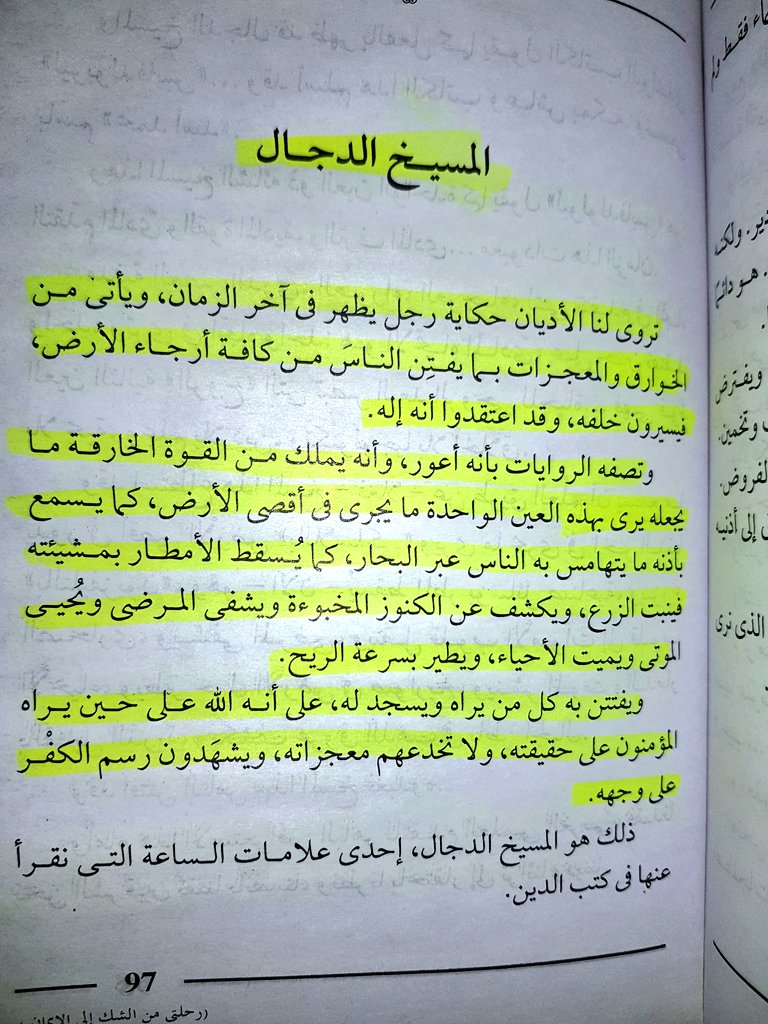 المسيـخ الدجـال
تروى لنا الأديان حكاية رجل يظهر فى آخر الزمان، ويأتى مـن
الخـوارق والمعجـزات بـما يفـتِن النـاسَ مـن كافـة أرجـاء الأرض،
فيسيرون خلفه، وقد اعتقدوا أنه إله.
وتصفه الروايات بأنه أعور، وأنه يملك مـن القـوة الخارقـة مـا
يجعله يرى بهذه العين الواحدة ما يجرى فى أقصى الأرض، كما يـسمع
بأذنه ما يتهامس به الناس عبر البحار، كما يُسقط الأمطـار بمـشيئته
فينبت الزرع، ويكشف عن الكنوز المخبوءة ويشفى المـرضى ويُحيـى
الموتى ويميت الأحياء، ويطير بسرعة الريح.
ويفتتن به كل من يراه ويسجد له، على أنـه الله عـلى حـين يـراه
المؤمنون على حقيقته، ولا تخدعهم معجزاته، ويشهَدون رسم الكفْـر
على وجهه.
ذلك هو المسيخ الدجال، إحدى علامـات الـساعة التـى نقـرأ
عنها فى كتب الدين.
97
(رحلتى من الشك إلى الإيمان
فقـط
ولكنه
هـو دائـمًا
ويفـترض
وتخمين.
الفروض.
إلى أذنيه
الذى نرى